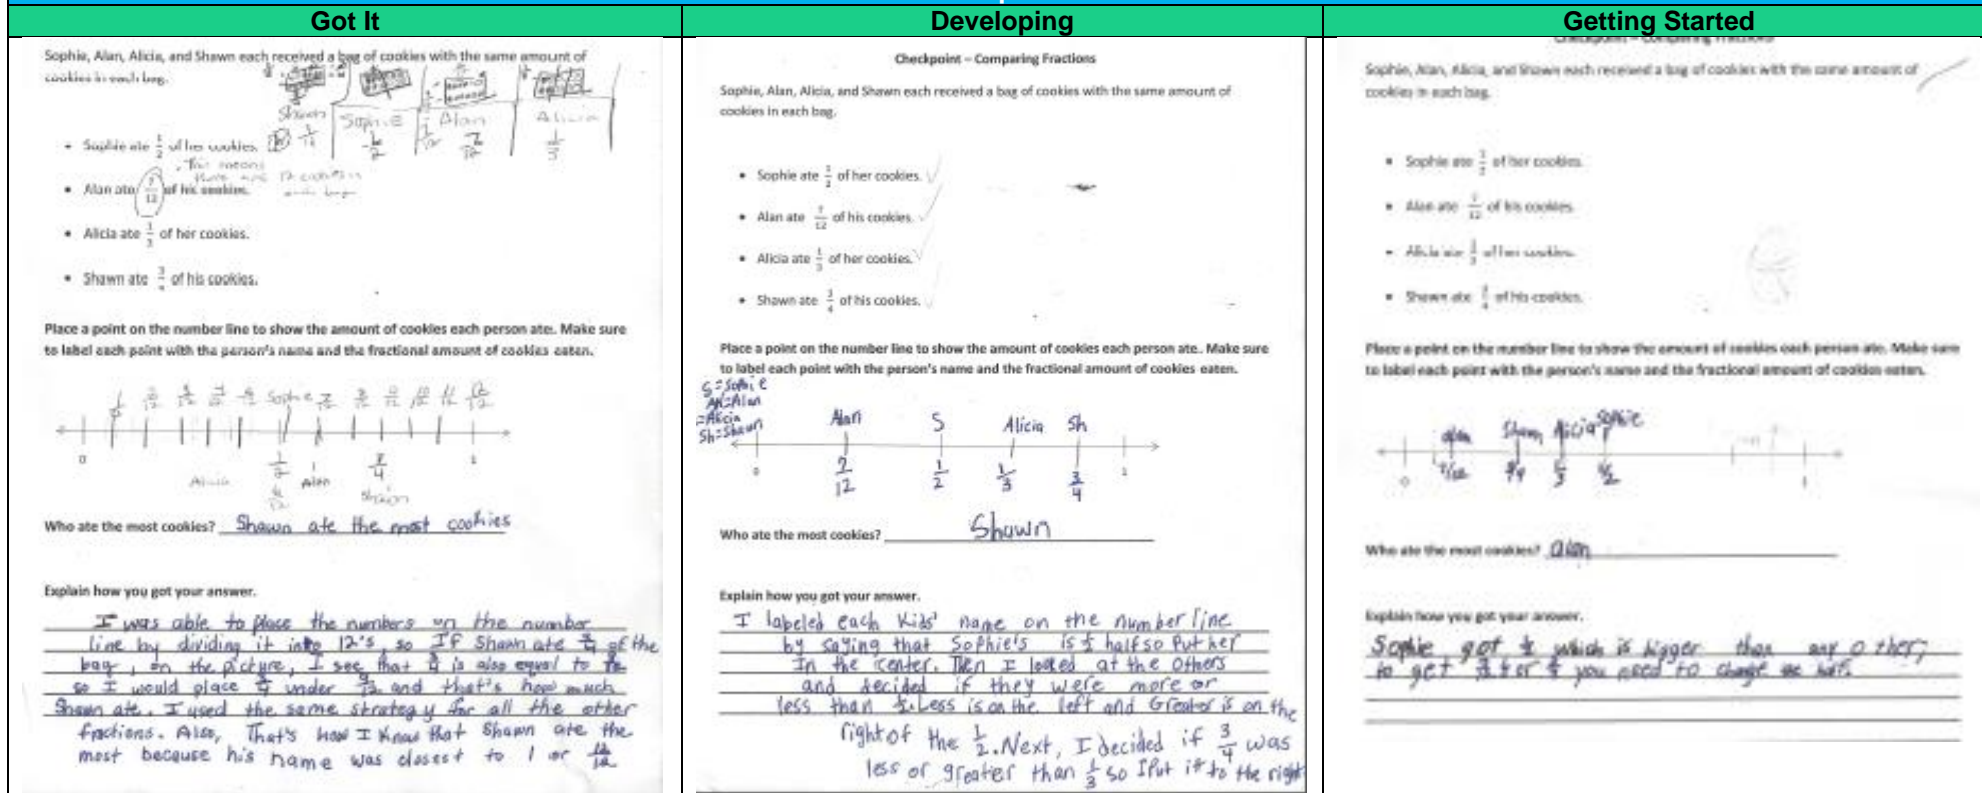 Got It
Sophie, Alan, Alicia, and Shawn each received a bag of cookies with the same amount of
cookies in each bag.
Shawn
Sophie
Alan
Alicia
1/2
7/12
1/3
• Sophie ate 1/2 of her cookies.
This means
there are 12 cookies in
each bag
• Alan ate 7/12 of his cookies.
• Alicia ate 1/3 of her cookies.
• Shawn ate 3/4 of his cookies.
Place a point on the number line to show the amount of cookies each person ate. Make sure
to label each point with the person's name and the fractional amount of cookies eaten.
Sophie
0 1/2 3/4 1
Alicia 6/12 Alan Shawn
Who ate the most cookies? Shawn ate the most cookies
Explain how you got your answer.
I was able to place the numbers on the number
line by dividing it into 12's, so If Shawn ate 3/4 of the
bag, on the picture, I see that 3/4 is also equal to 9/12
so I would place 3/4 under 9/12 and that's how much
Shawn ate. I used the same strategy for all the other
fractions. Also, That's how I know that Shawn ate the
most because his name was closest to 1 or 12/12
Developing
Checkpoint – Comparing Fractions
Sophie, Alan, Alicia, and Shawn each received a bag of cookies with the same amount of
cookies in each bag.
• Sophie ate 1/2 of her cookies.
• Alan ate 7/12 of his cookies.
• Alicia ate 1/3 of her cookies.
• Shawn ate 3/4 of his cookies.
Place a point on the number line to show the amount of cookies each person ate. Make sure
to label each point with the person's name and the fractional amount of cookies eaten.
S=Sophie
=Alan
=Alicia
Sh=Shawn
Alan S Alicia Sh
0 7/12 1/2 1/3 3/4 1
Who ate the most cookies? Shawn
Explain how you got your answer.
I labeled each kids' name on the number line
by saying that Sophie's is 1/2 half so Put her
In the center. Then I looked at the others
and decided if they were more or
less than 1/2. Less is on the left and Greater is on the
right of the 1/2. Next, I decided if 3/4 was
less or greater than 1/3 so I Put it to the right
Getting Started
Checkpoint – Comparing Fractions
Sophie, Alan, Alicia, and Shawn each received a bag of cookies with the same amount of
cookies in each bag.
• Sophie ate 1/2 of her cookies.
• Alan ate 7/12 of his cookies.
• Alicia ate 1/3 of her cookies.
• Shawn ate 3/4 of his cookies.
Place a point on the number line to show the amount of cookies each person ate. Make sure
to label each point with the person's name and the fractional amount of cookies eaten.
alan Shawn Alicia Sophie
0 7/12 3/4 1/3 1/2 1
Who ate the most cookies? alan
Explain how you got your answer.
Sophie got 1/2 which is bigger than any other,
to get you need to change